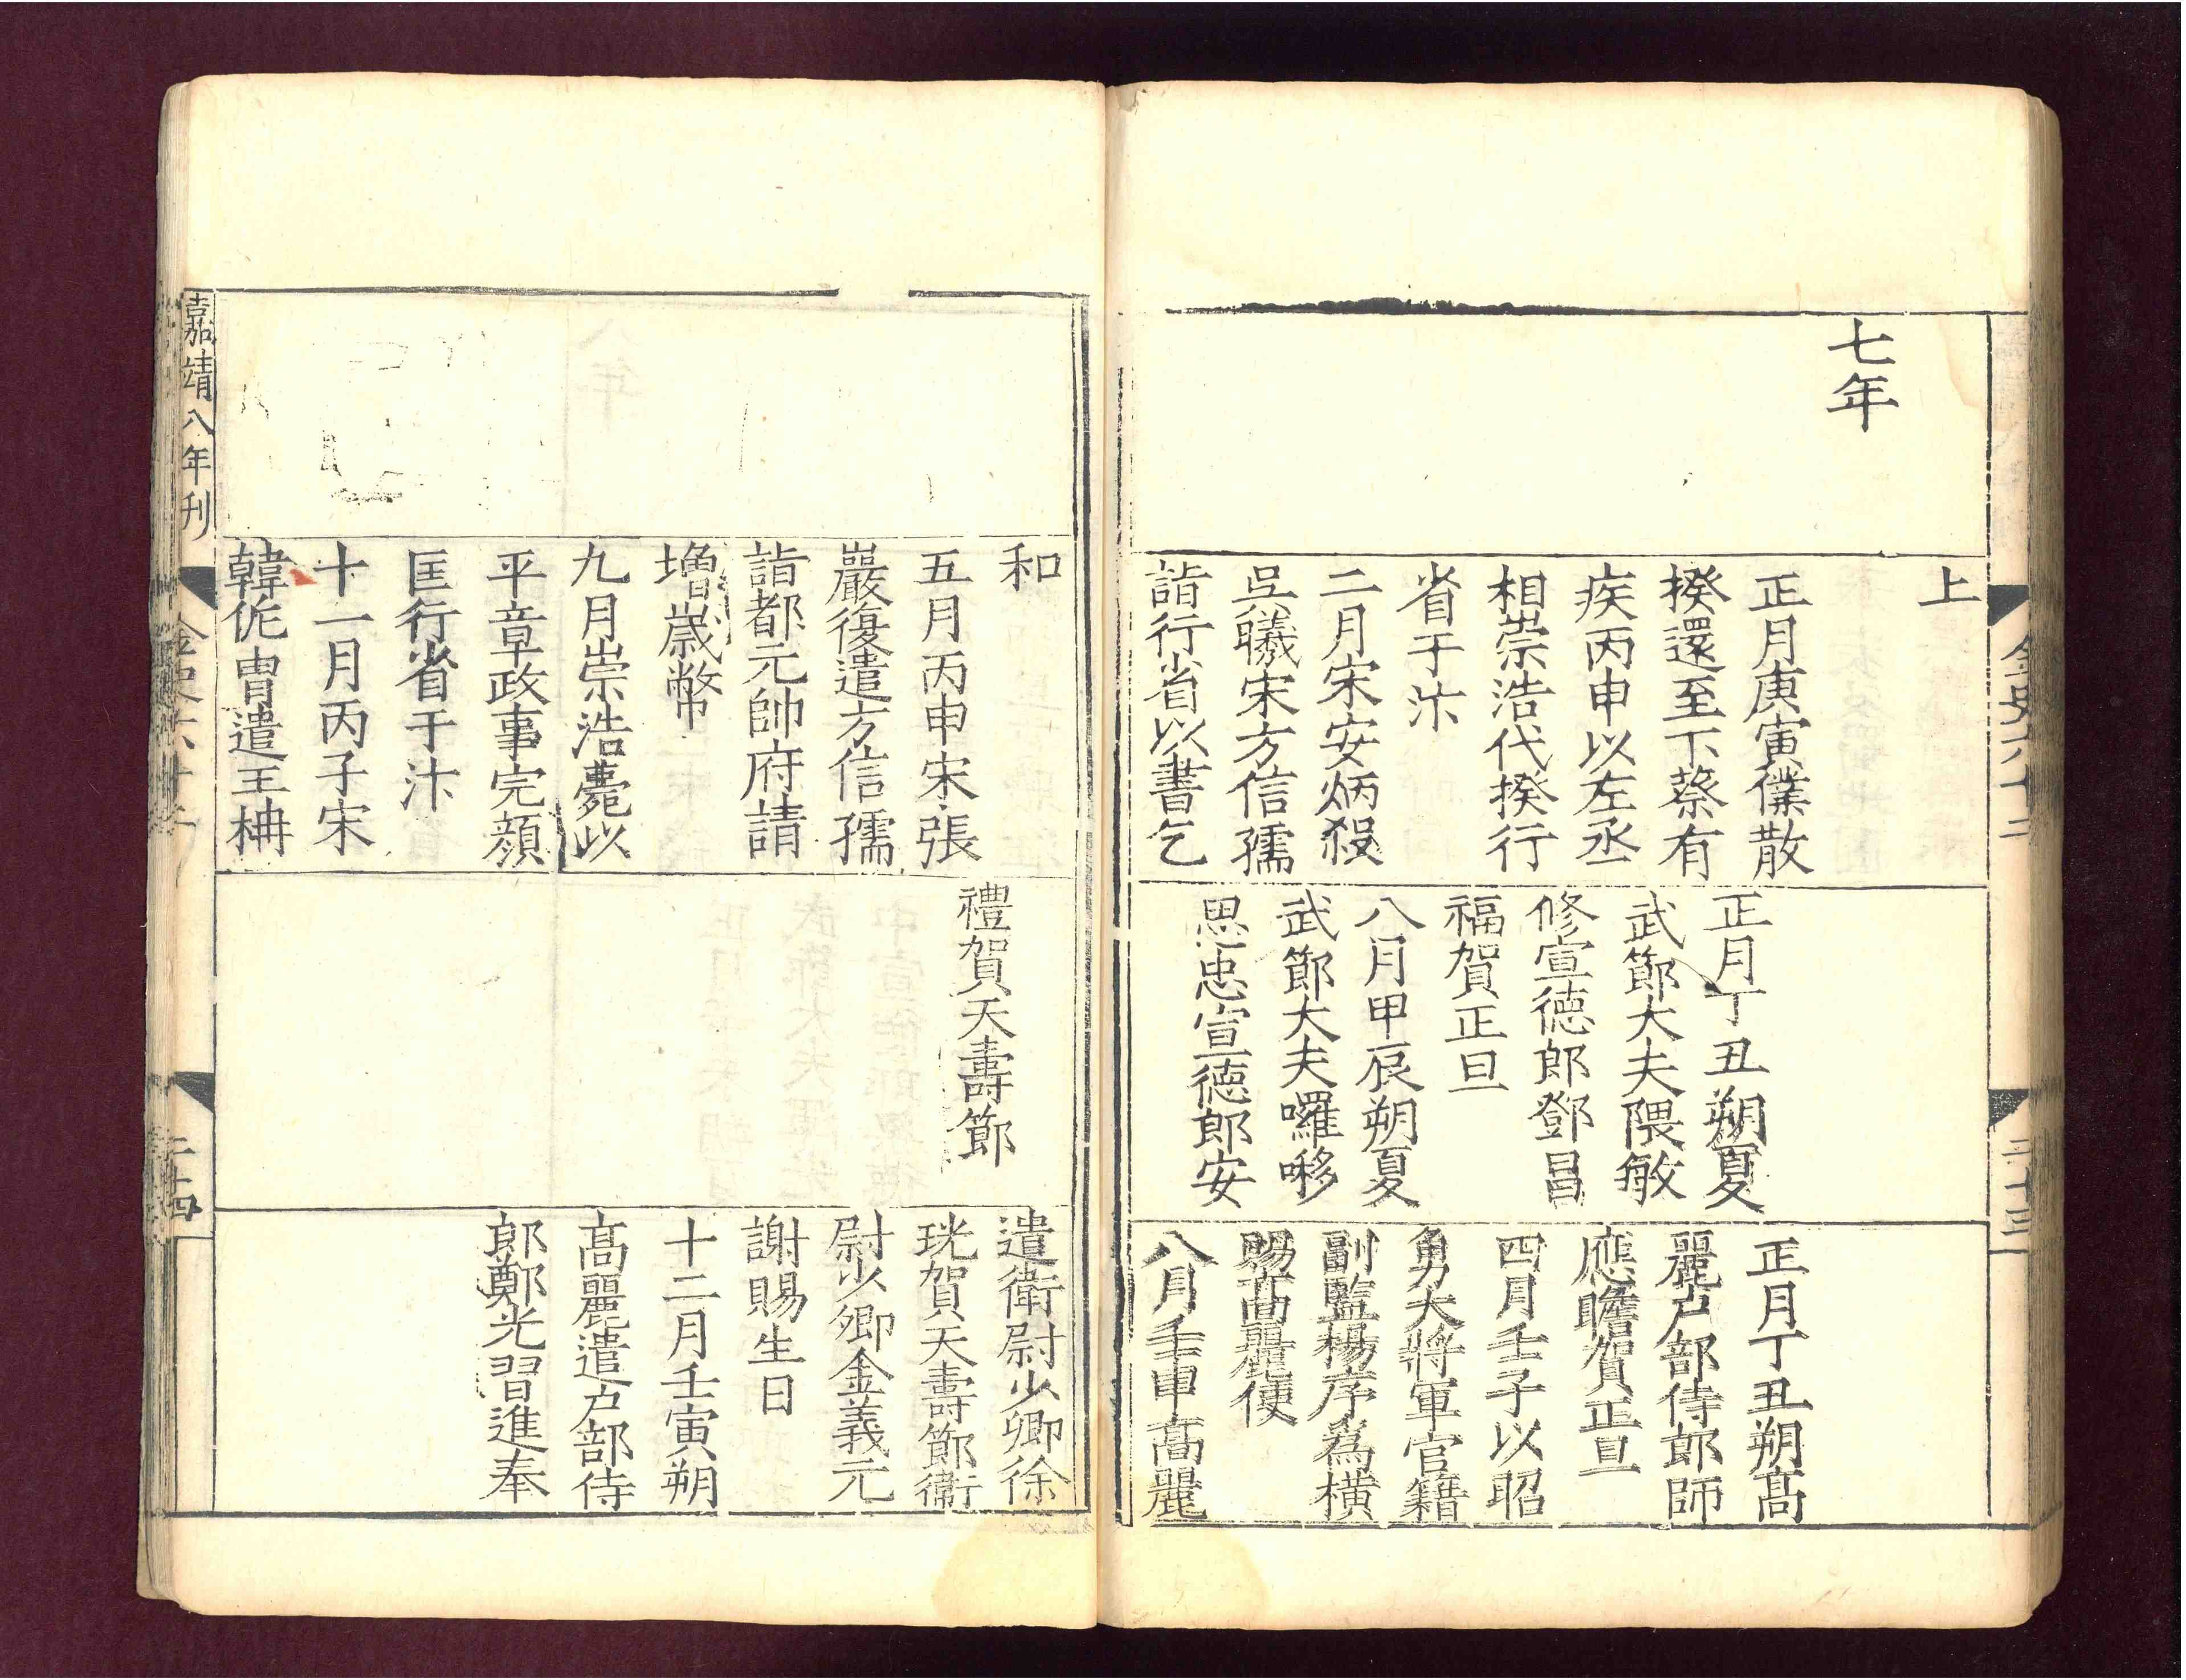 七年
上
正月庚寅僕散
揆還至下蔡有
疾丙申以左丞
相崇浩代揆行
省于汴
二月宋安炳殺
吳曦宋方信孺
詣行省以書乞
正月丁丑朔夏
武節大夫隈敏
修宣德郎鄧昌
福賀正旦
八月甲辰朔夏
武節大夫囉哆
思忠宣德郎安
正月丁丑朔髙
麗户部侍郎師
應瞻賀正旦
四月壬子以昭
勇大將軍官籍
副監楊序爲橫
賜髙麗使
八月壬申髙麗
金史六十二
二十三
和
五月丙申宋張
嚴復遣方信孺
詣都元帥府請
增歲幣
九月崇浩薨以
平章政事完顔
匡行省于汴
十一月丙子宋
韓侂冑遣王柟
禮賀天壽節
遣衛尉少卿徐
珖賀天壽節衛
尉少卿金義元
謝賜生日
十二月壬寅朔
髙麗遣户部侍
郎鄭光習進奉
嘉靖八年刊
金史六十二
二十四